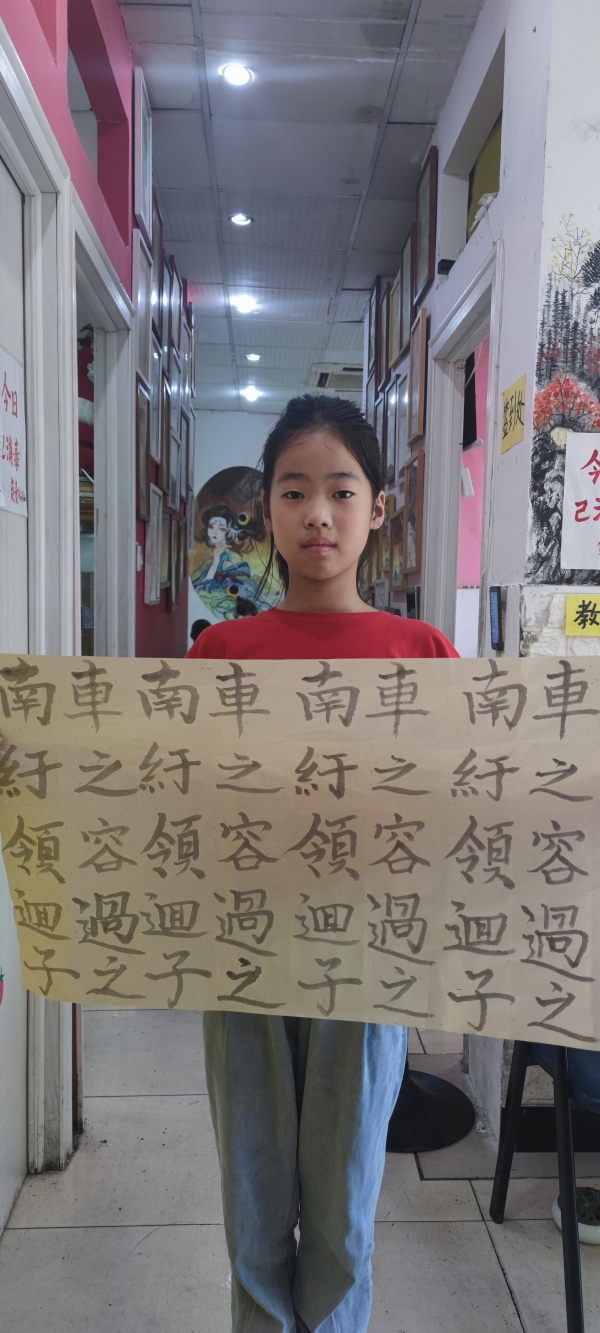 車之容過之
南紆領迴子
車之容過之
南紆領迴子
車之容過之
南紆領迴子
車之容過之
南紆領迴子
今日
已消毒
签到处
今
已
教